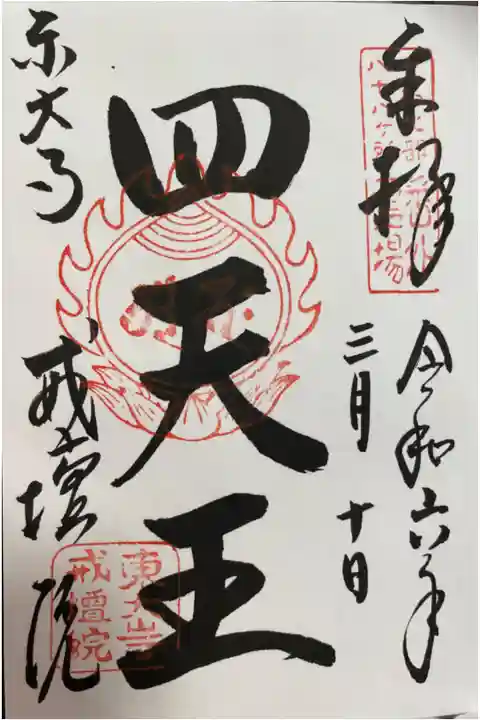 奉拝
令和六年
三月 十日
四天王
東大寺
戒壇院
東大寺
戒壇院